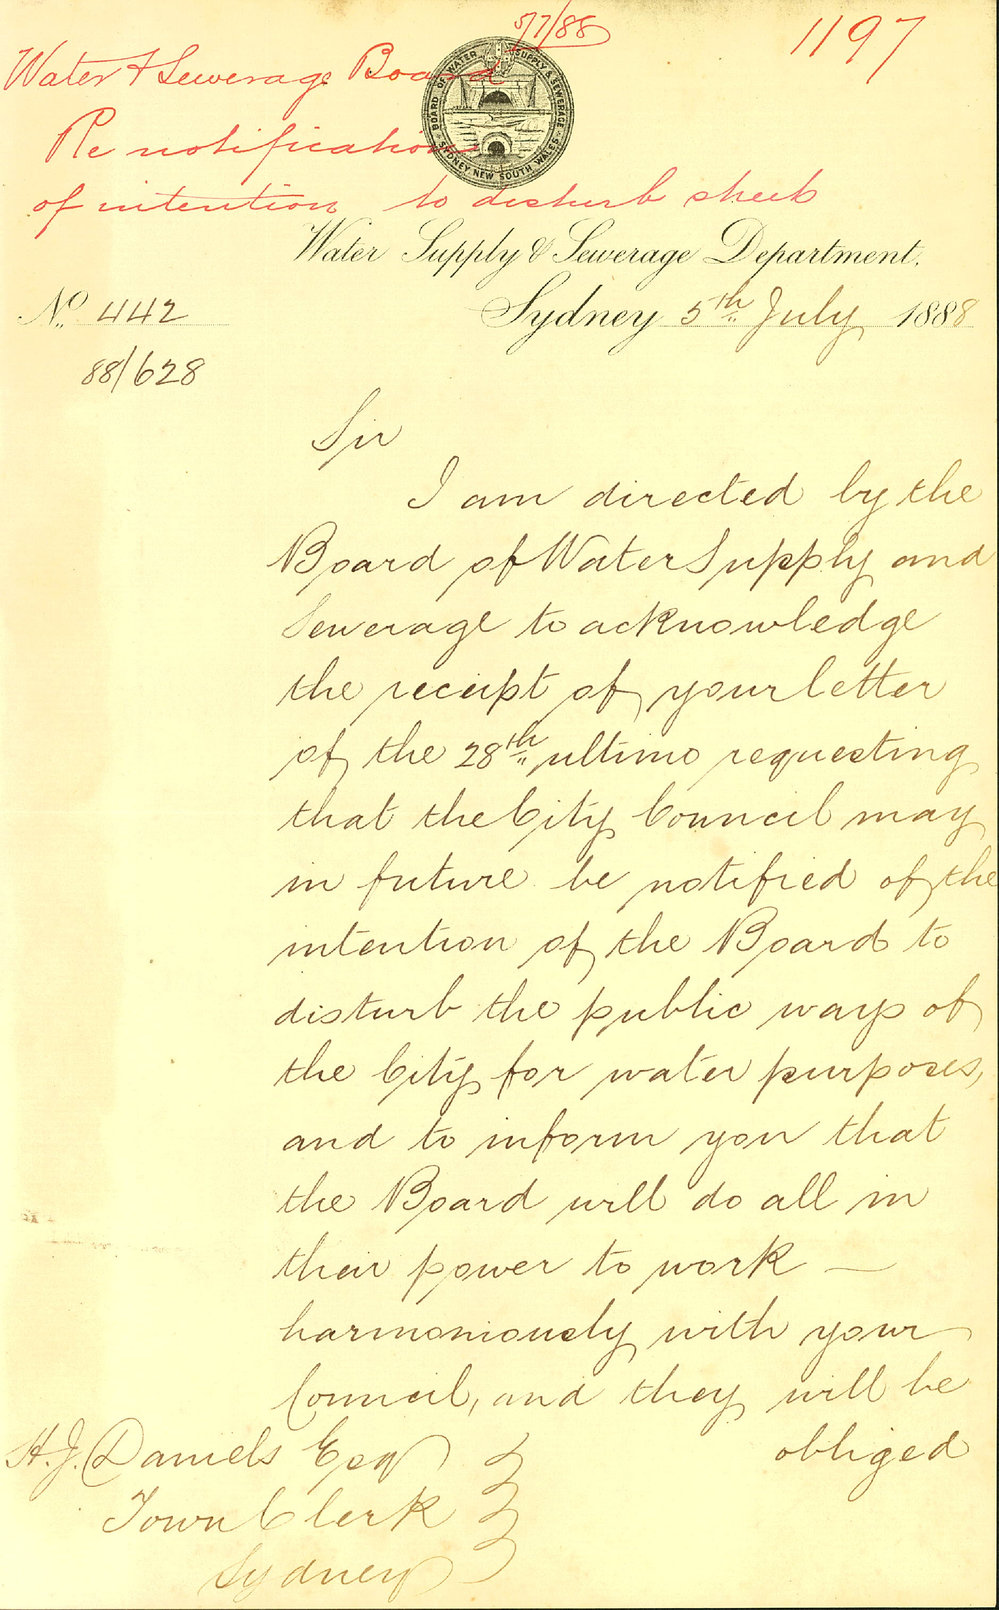 5/7/88
1197
Water & Sewerage Board
Re notification
of intention to disturb streets
BOARD OF WATER SUPPLY & SEWERAGE
SYDNEY NEW SOUTH WALES
Water Supply & Sewerage Department.
No. 442
Sydney 5th July 1888
88/628
Sir
I am directed by the
Board of Water Supply and
Sewerage to acknowledge
the receipt of your letter
of the 28th ultimo requesting
that the City Council may
in future be notified of the
intention of the Board to
disturb the public ways of
the City for water purposes,
and to inform you that
the Board will do all in
their power to work —
harmoniously with your
Council, and they will be
obliged
H. J. Daniels Esq
Town Clerk
Sydney